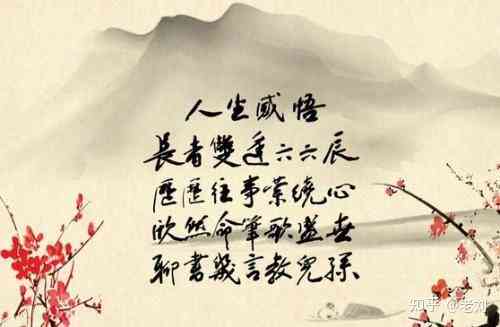 人生感悟
長者雙逢六六辰
歷歷往事縈繞心
欣然命筆歌盛世
聊書幾言教兒孫
知乎 @老刘